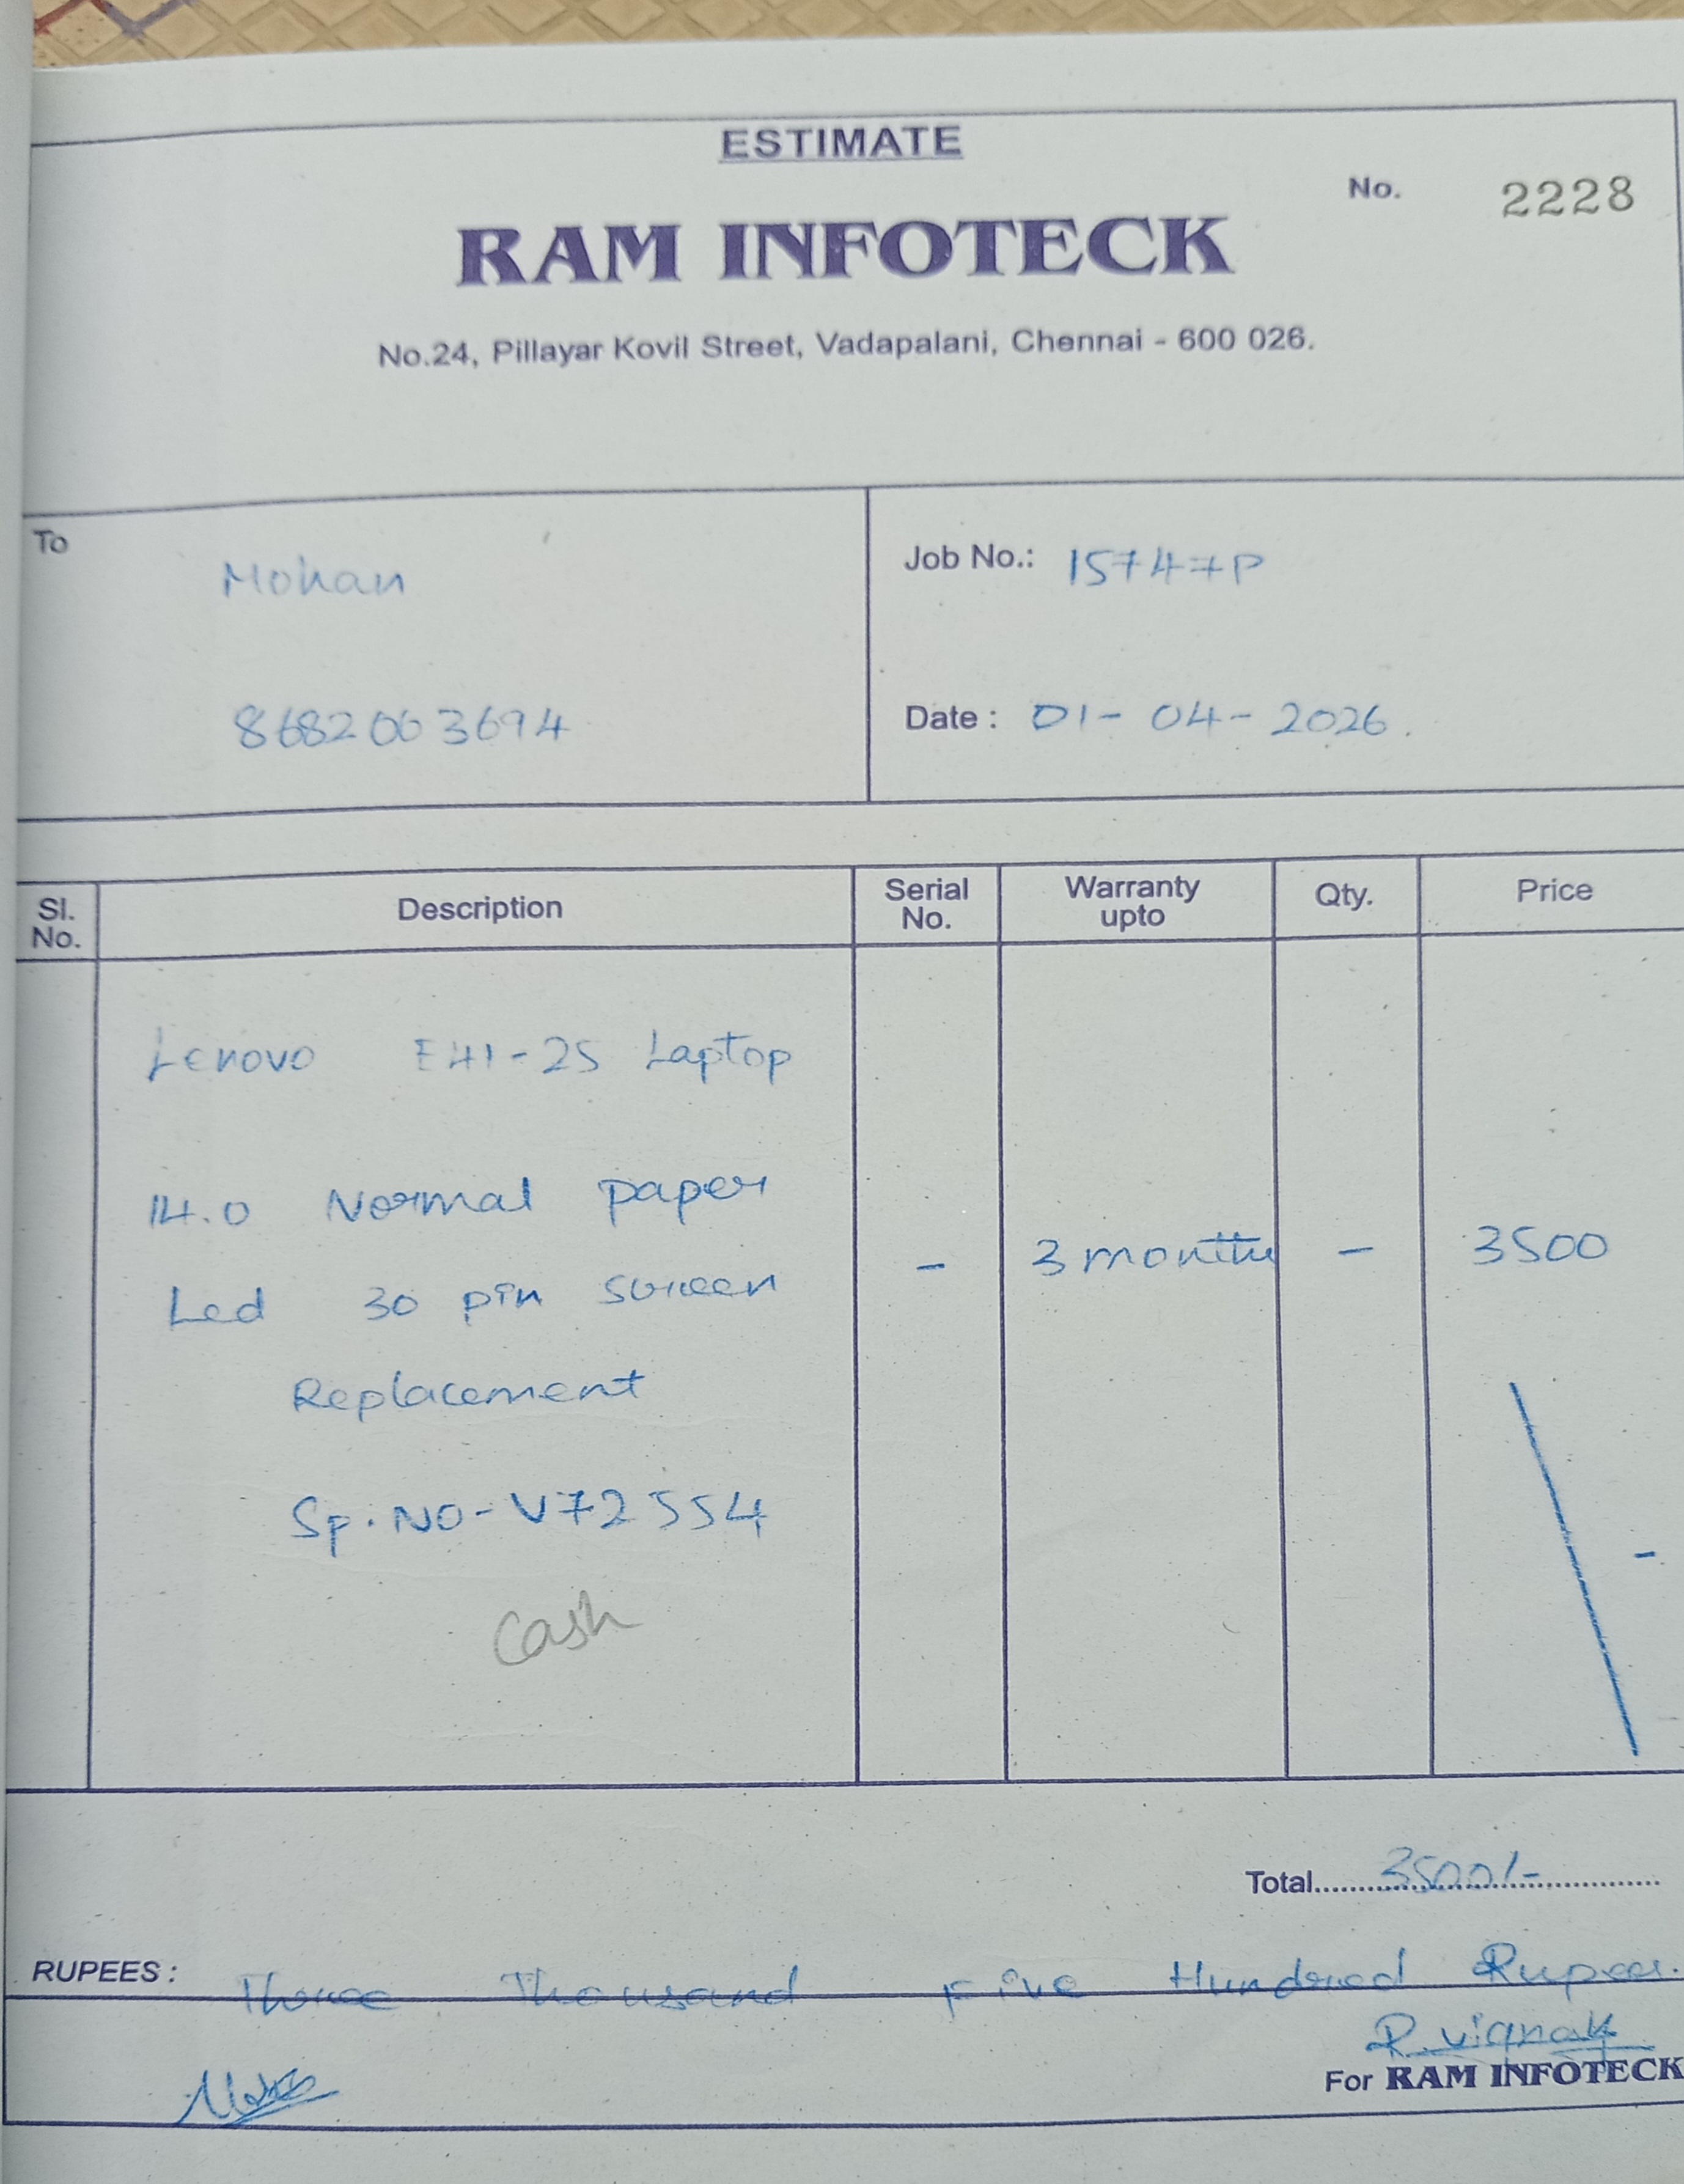 ESTIMATE
No. 2228
RAM INFOTECK
No.24, Pillayar Kovil Street, Vadapalani, Chennai - 600 026.
To
Mohan
8682003694
Job No.: 15747P
Date : 01-04-2026.
Sl. No. Description Serial No. Warranty upto Qty. Price
Lenovo E41-25 Laptop
14.0 Normal paper
Led 30 pin screen - 3 months - 3500
Replacement
Sp.No-V72554
Cash
Total 3500/-
RUPEES : Three Thousand Five Hundred Rupees.
For RAM INFOTECK